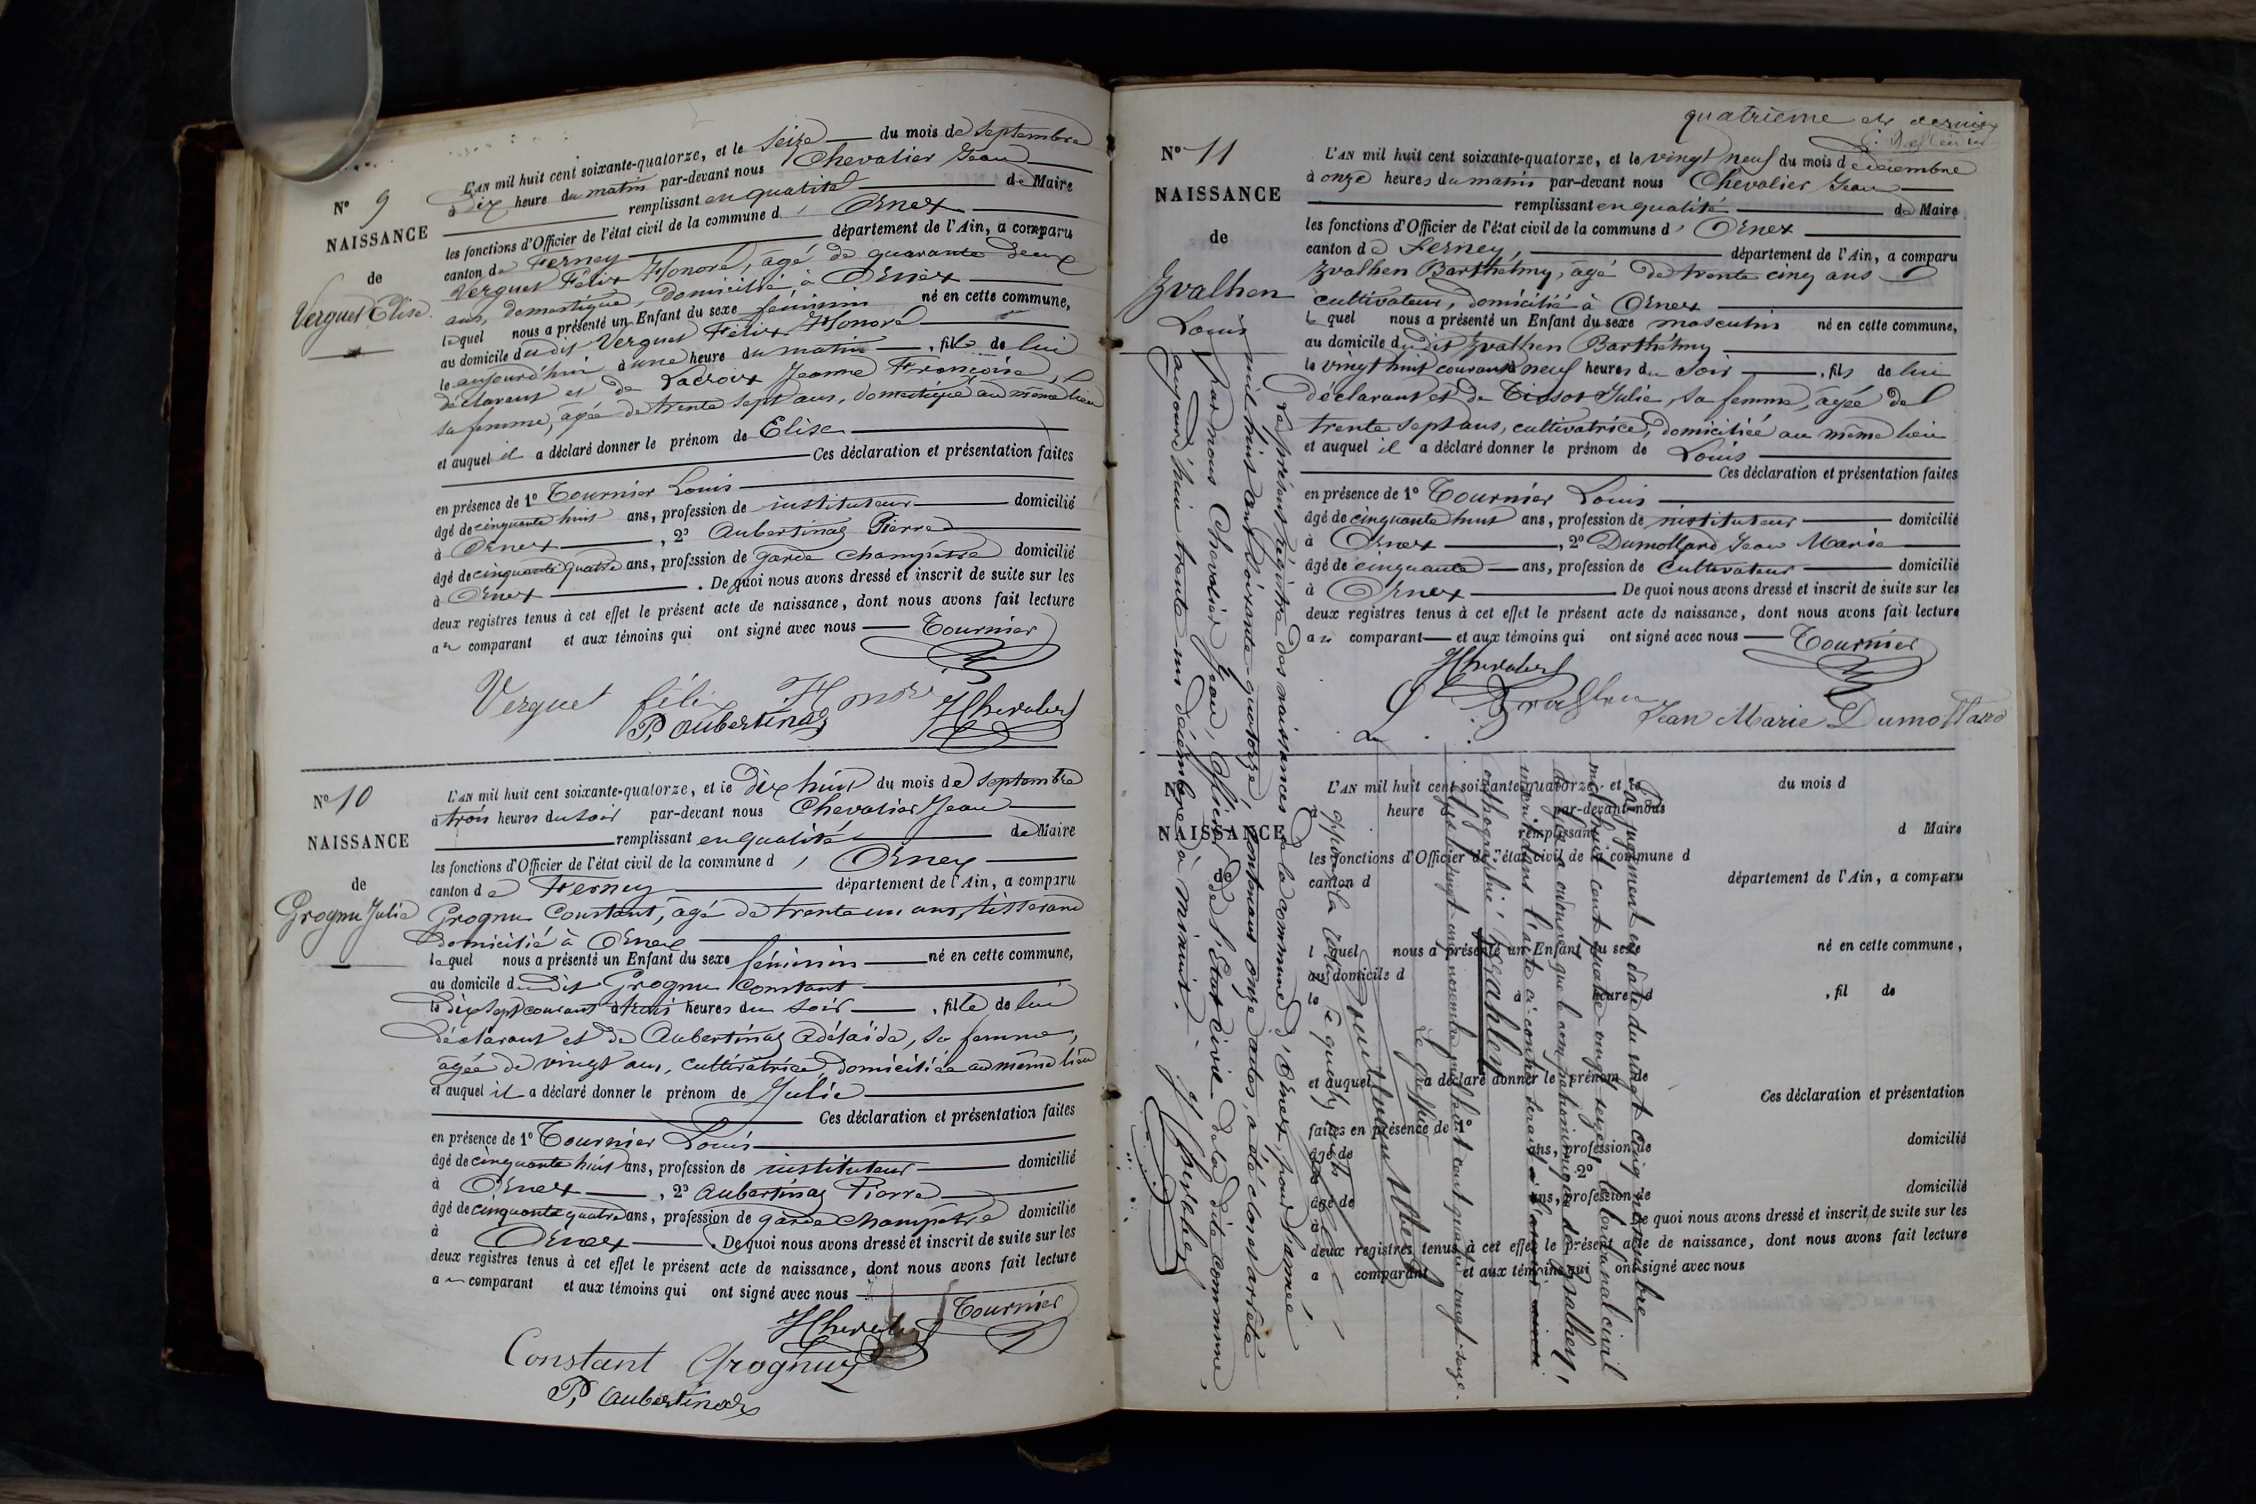 N° 9
NAISSANCE
de
Verguet Elise
L'AN mil huit cent soixante-quatorze, et le Seize du mois de Septembre
à Dix heure du matin par-devant nous Chevalier Jean
remplissant en qualité de Maire
les fonctions d'Officier de l'état civil de la commune d' Ornex
canton de Ferney département de l'Ain, a comparu
Verguet Félix Honoré, âgé de quarante deux
ans, domestique, domicilié à Ornex
lequel nous a présenté un Enfant du sexe féminin né en cette commune,
au domicile dudit Verguet Félix Honoré
le aujourd'hui à une heure du matin, fille de lui
déclarant et de Lacroix Jeanne Françoise,
sa femme, âgée de trente sept ans, domestique au même lieu
et auquel il a déclaré donner le prénom de Elise
Ces déclaration et présentation faites
en présence de 1° Tournier Louis
âgé de cinquante huit ans, profession de instituteur domicilié
à Ornex, 2° Aubertinaz Pierre
âgé de cinquante quatre ans, profession de garde champêtre domicilié
à Ornex. De quoi nous avons dressé et inscrit de suite sur les
deux registres tenus à cet effet le présent acte de naissance, dont nous avons fait lecture
au comparant et aux témoins qui ont signé avec nous Tournier
Verguet félix Honoré JChevalier
P, Aubertinaz
N° 10
NAISSANCE
de
Grognu Julie
L'AN mil huit cent soixante-quatorze, et le Dix huit du mois de Septembre
à trois heures du soir par-devant nous Chevalier Jean
remplissant en qualité de Maire
les fonctions d'Officier de l'état civil de la commune d' Ornex
canton de Ferney département de l'Ain, a comparu
Grognu Constant, âgé de trente un ans, tisserand
domicilié à Ornex
lequel nous a présenté un Enfant du sexe féminin né en cette commune,
au domicile dudit Grognu Constant
le dix sept courant à trois heures du soir, fille de lui
déclarant et de Aubertinaz Adélaïde, sa femme,
âgée de vingt ans, cultivatrice, domiciliée au même lieu
et auquel il a déclaré donner le prénom de Julie
Ces déclaration et présentation faites
en présence de 1° Tournier Louis
âgé de cinquante huit ans, profession de instituteur domicilié
à Ornex, 2° Aubertinaz Pierre
âgé de cinquante quatre ans, profession de garde champêtre domicilié
à Ornex. De quoi nous avons dressé et inscrit de suite sur les
deux registres tenus à cet effet le présent acte de naissance, dont nous avons fait lecture
au comparant et aux témoins qui ont signé avec nous
JChevalier Tournier
Constant Grognuz
P, Aubertinaz
quatrième et dernier
N° 11
NAISSANCE
de
Zvalhen
Louis
L'AN mil huit cent soixante-quatorze, et le vingt neuf du mois de Décembre
à onze heures du matin par-devant nous Chevalier Jean
remplissant en qualité de Maire
les fonctions d'Officier de l'état civil de la commune d' Ornex
canton de Ferney, département de l'Ain, a comparu
Zvalhen Barthélmy, âgé de trente cinq ans
cultivateur, domicilié à Ornex
lequel nous a présenté un Enfant du sexe masculin né en cette commune,
au domicile dudit Zvalhen Barthélmy
le vingt huit courant à neuf heures du soir, fils de lui
déclarant et de Tissot Julie, sa femme, âgée de
trente sept ans, cultivatrice, domiciliée au même lieu
et auquel il a déclaré donner le prénom de Louis
Ces déclaration et présentation faites
en présence de 1° Tournier Louis
âgé de cinquante huit ans, profession de instituteur domicilié
à Ornex, 2° Dumollard Jean Marie
âgé de cinquante ans, profession de cultivateur domicilié
à Ornex De quoi nous avons dressé et inscrit de suite sur les
deux registres tenus à cet effet le présent acte de naissance, dont nous avons fait lecture
au comparant et aux témoins qui ont signé avec nous Tournier
JChevalier
Jean Marie Dumollard
Le présent régistre des naissances de la commune d'Ornex, pour l'année
mil huit cent soixante-quatorze, contenant onze actes, a été clos et arrêté
par nous Chevalier Jean, officier de l'Etat civil de la dite commune,
aujourd'hui trente un décembre à minuit.
JChevalier
L'AN mil huit cent soixante-quatorze, et le du mois d
à heure par-devant nous
NAISSANCE
de
remplissant d Maire
les fonctions d'Officier de l'état civil de la commune d
canton d département de l'Ain, a comparu
l quel nous a présenté un Enfant du sexe né en cette commune,
au domicile d
le à heure d , fil de
et auquel a déclaré donner le prénom de
Ces déclaration et présentation
faites en présence de 1°
âgé de ans, profession de domicilié
à 2°
âgé de ans, profession de domicilié
à De quoi nous avons dressé et inscrit de suite sur les
deux registres tenus à cet effet le présent acte de naissance, dont nous avons fait lecture
a comparant et aux témoins qui ont signé avec nous
Par jugement en date du vingt cinq novembre
mil huit cent quatre vingt seize, le tribunal civil
de Gex a ordonné que le nom patronimique de Zvalhen,
inscrit dans l'acte ci-contre serait à l'avenir
orthographié: Zgrahlen
Gex le vingt cinq novembre mil huit cent quatre vingt-seize.
Le Greffier